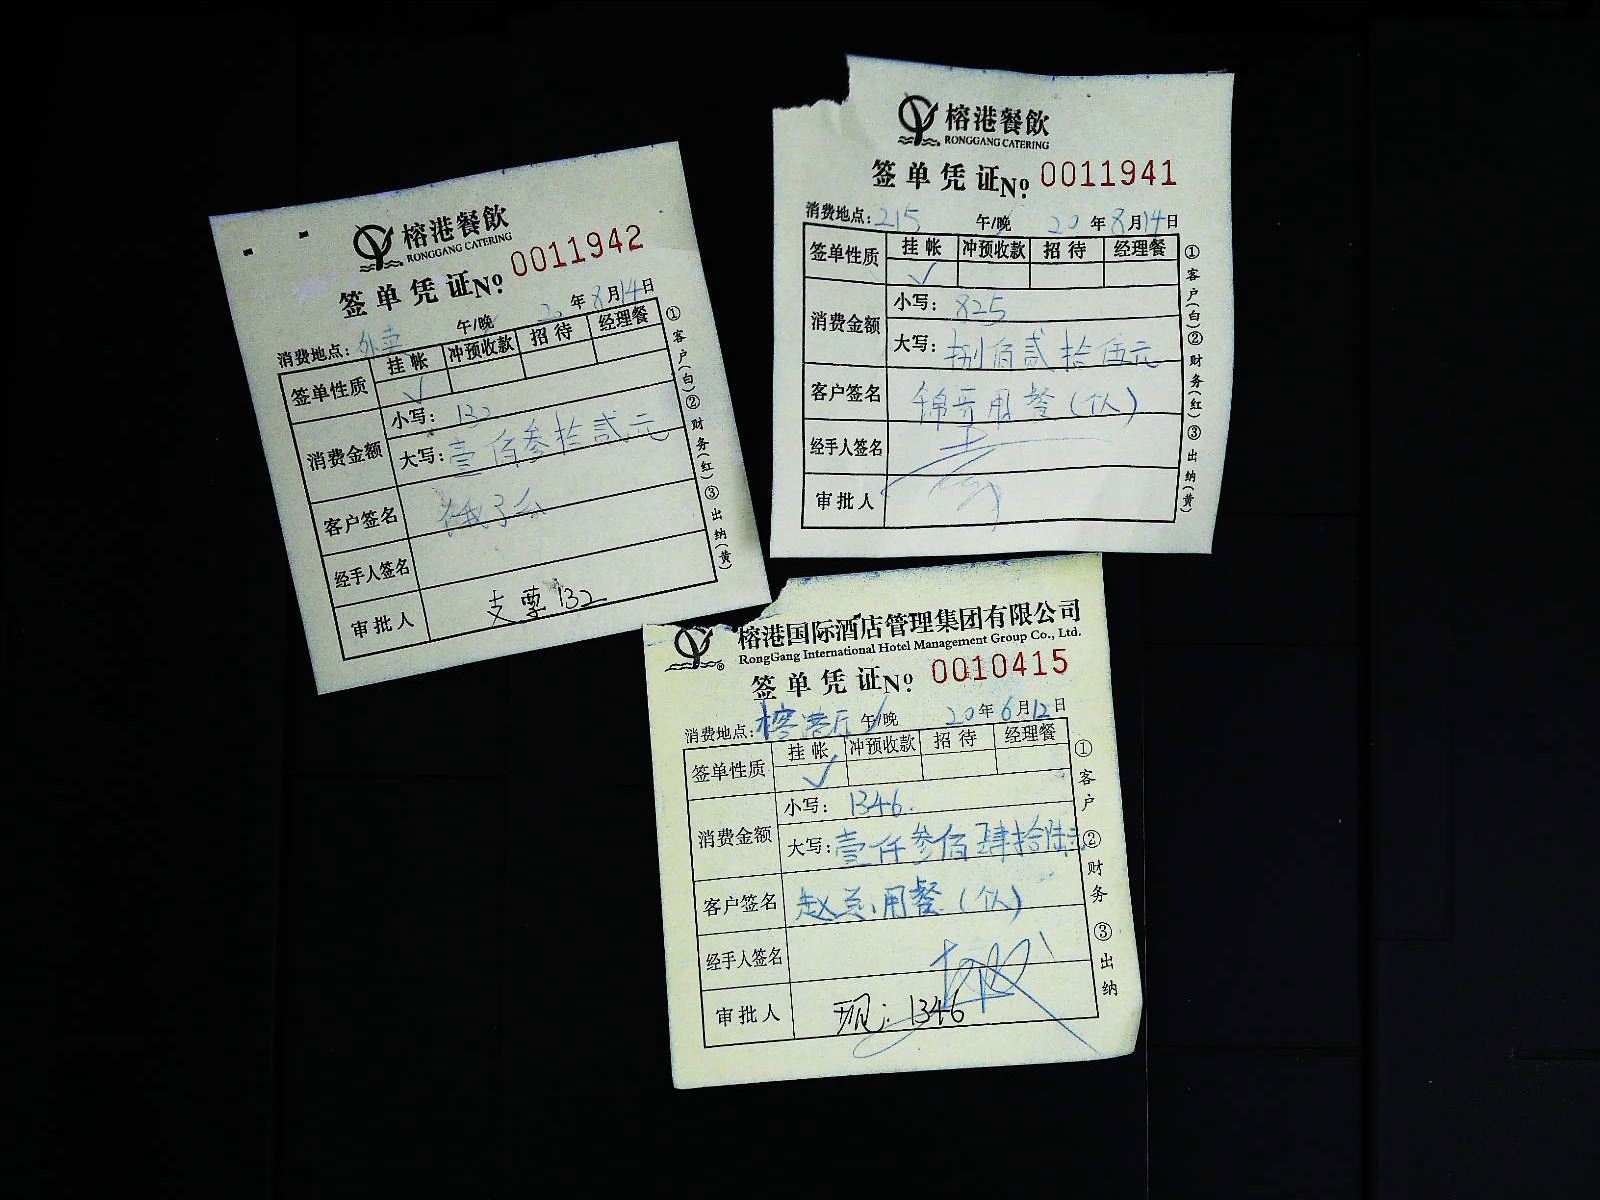 榕港餐飲
RONGGANG CATERING
签单凭证№ 0011942
消费地点：外卖 午/晚 20年8月14日
签单性质 挂帐 冲预收款 招待 经理餐
✓
消费金额 小写：132
大写：壹佰叁拾贰元
客户签名 饿了么
经手人签名
审批人 支票132
①客户(白)②财务(红)③出纳(黄)
榕港餐飲
RONGGANG CATERING
签单凭证№ 0011941
消费地点：215 午/晚 20年8月14日
签单性质 挂帐 冲预收款 招待 经理餐
✓
消费金额 小写：825
大写：捌佰贰拾伍元
客户签名 用餐(伙)
经手人签名
审批人
①客户(白)②财务(红)③出纳(黄)
榕港国际酒店管理集团有限公司
RongGang International Hotel Management Group Co., Ltd.
签单凭证№ 0010415
消费地点：榕港厅 午/晚 20年6月12日
签单性质 挂帐 冲预收款 招待 经理餐
✓
消费金额 小写：1346.
大写：壹仟叁佰肆拾陆元
客户签名 赵总用餐(伙)
经手人签名
审批人 现：1346
①客户②财务③出纳